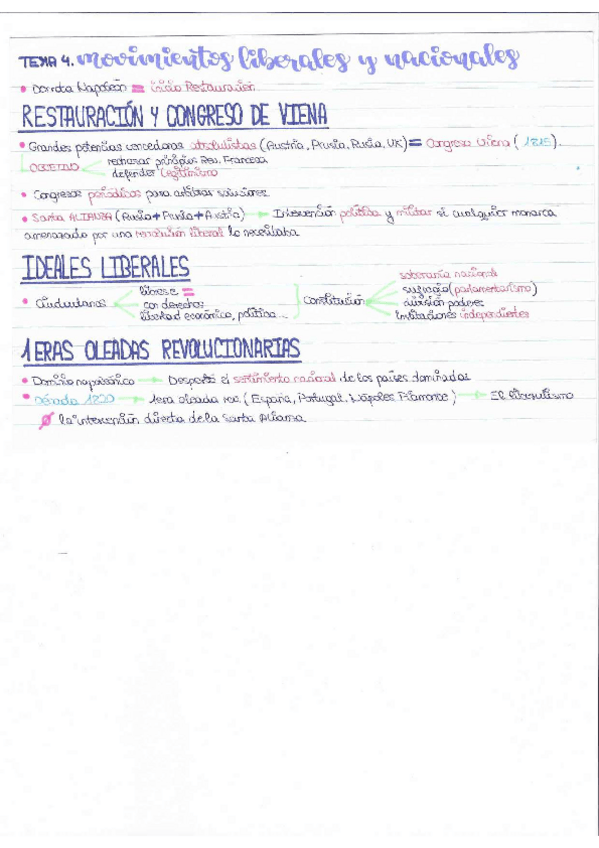 TEMA 4. movimientos liberales y nacionales
• Derrota Napoleón = inicio Restauración
RESTAURACIÓN Y CONGRESO DE VIENA
• Grandes potencias vencedoras absolutistas (Austria, Prusia, Rusia, UK) = Congreso Viena (1815).
OBJETIVO
rechazar principios Rev. Francesa
defender legitimismo
• Congresos periódicos para arbitrar soluciones
• Santa ALIANZA (Rusia + Prusia + Austria) → Intervención política y militar si cualquier monarca
amenazado por una revolución liberal lo necesitaba
IDEALES LIBERALES
• Ciudadanos
libres e =
con derechos
libertad económica, política...
Constitución
soberanía nacional
sufragio (parlamentarismo)
división poderes
Instituciones independientes
1ERAS OLEADAS REVOLUCIONARIAS
• Dominio napoleónico → Despertó el sentimiento nacional de los países dominados
• Década 1820 → 1era oleada rev. (España, Portugal, Nápoles, Piamonte) → El liberalismo
la intervención directa de la Santa Alianza